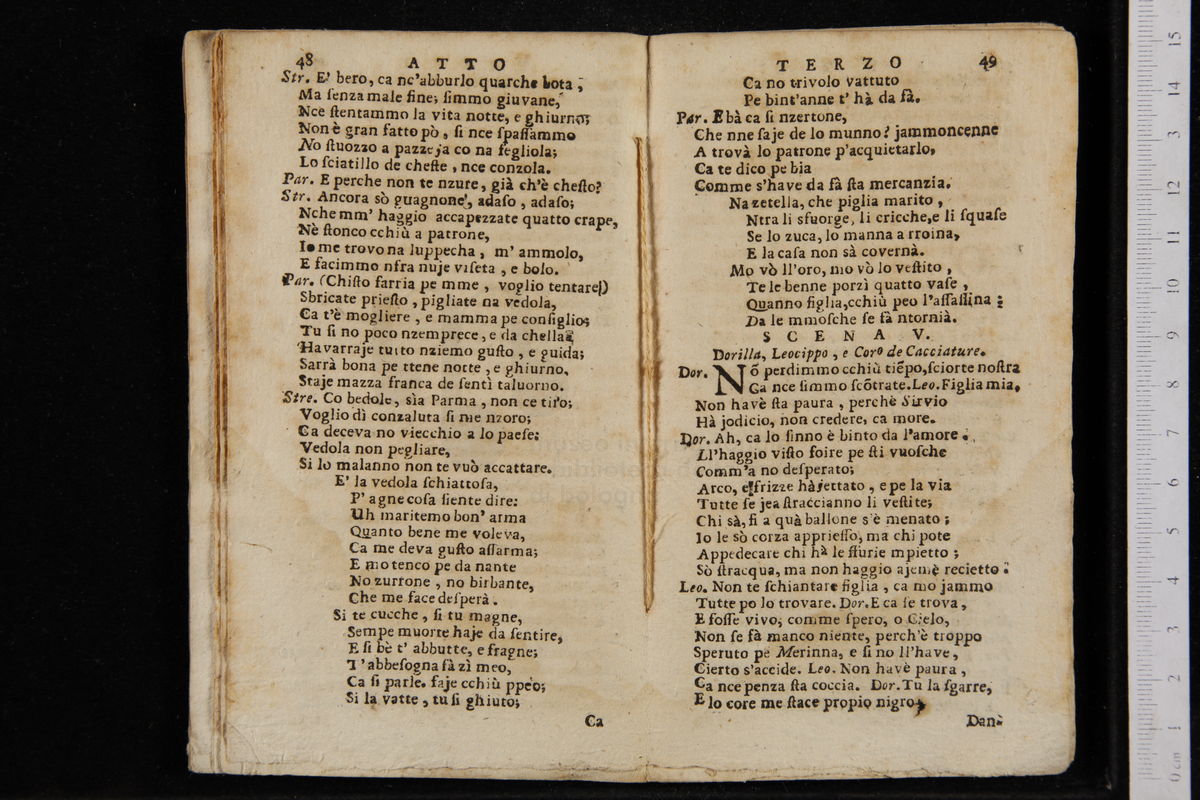 48 ATTO
Str. E' bero, ca nc'abburlo quarche bota;
Ma ſenza male fine; ſimmo giuvane,
Nce ſtentammo la vita notte, e ghiurno;
Non è gran fatto pò, ſi nce ſpaſſammo
No ſtuozzo a pazzeja co na fegliola;
Lo ſciatillo de cheſte, nce conzola.
Par. E perche non te nzure, già ch'è cheſto?
Str. Ancora sò guagnone, adaſo, adaſo;
Nche mm' haggio accapezzate quatto crape,
Nè ſtonco cchiù a patrone,
Io me trovo na luppecha, m' ammolo,
E facimmo nfra nuje viſeta, e bolo.
Par. (Chiſto farria pe mme, voglio tentare)
Sbricate prieſto, pigliate na vedola,
Ca t'è mogliere, e mamma pe conſiglio;
Tu ſi no poco nzemprece, e da chella
Havarraje tutto nziemo guſto, e guida;
Sarrà bona pe ttene notte, e ghiurno,
Staje mazza franca de ſentì taluorno.
Stre. Co bedole, sìa Parma, non ce tiro;
Voglio dì conzaluta ſi me nzoro;
Ca deceva no viecchio a lo paeſe:
Vedola non pegliare,
Si lo malanno non te vuò accattare.
E' la vedola ſchiattoſa,
P' agne coſa ſiente dire:
Uh maritemo bon' arma
Quanto bene me voleva,
Ca me deva guſto aſſarma;
E mo tenco pe da nante
No zurrone, no birbante,
Che me face deſperà.
Si te cucche, ſi tu magne,
Sempe muorte haje da ſentire,
E ſi bè t' abbutte, e fragne;
T' abbeſogna fà zì meo,
Ca ſi parle, faje cchiù ppeo;
Si la vatte, tu ſi ghiuto;
Ca
TERZO 49
Ca no trivolo vattuto
Pe bint'anne t' hà da fà.
Par. E bà ca ſi nzertone,
Che nne ſaje de lo munno? jammoncenne
A trovà lo patrone p'acquietarlo,
Ca te dico pe bia
Comme s'have da fà ſta mercanzia.
Na zetella, che piglia marito,
Ntra li sfuorge, li cricche, e li ſquaſe
Se lo zuca, lo manna a rroina,
E la caſa non sà covernà.
Mo vò ll'oro, mo vò lo veſtito,
Te le benne porzì quatto vaſe,
Quanno figlia, cchiù peo l'aſſaſſina;
Da le mmoſche ſe fà ntornià.
SCENA V.
Dorilla, Leocippo, e Coro de Cacciature.
Dor. Nõ perdimmo cchiù tiẽpo, ſciorte noſtra
Ca nce ſimmo ſcõtrate. Leo. Figlia mia,
Non havè ſta paura, perchè Sirvio
Hà jodicio, non credere, ca more.
Dor. Ah, ca lo ſinno è binto da l'amore.
Ll'haggio viſto foire pe ſti vuoſche
Comm'a no deſperato;
Arco, e frizze hà jettato, e pe la via
Tutte ſe jea ſtraccianno li veſtite;
Chi sà, ſi a quà ballone s'è menato;
Io le sò corza apprieſſo, ma chi pote
Appedecare chi hà le ffurie mpietto;
Sò ſtracqua, ma non haggio ajemè recietto.
Leo. Non te ſchiantare figlia, ca mo jammo
Tutte po lo trovare. Dor. E ca ſe trova,
E foſſe vivo, comme ſpero, o Cielo,
Non ſe fà manco niente, perch'è troppo
Speruto pe Merinna, e ſi no ll'have,
Cierto s'accide. Leo. Non havè paura,
Ca nce penza ſta coccia. Dor. Tu la sgarre,
E lo core me ſtace propio nigro,
Danà